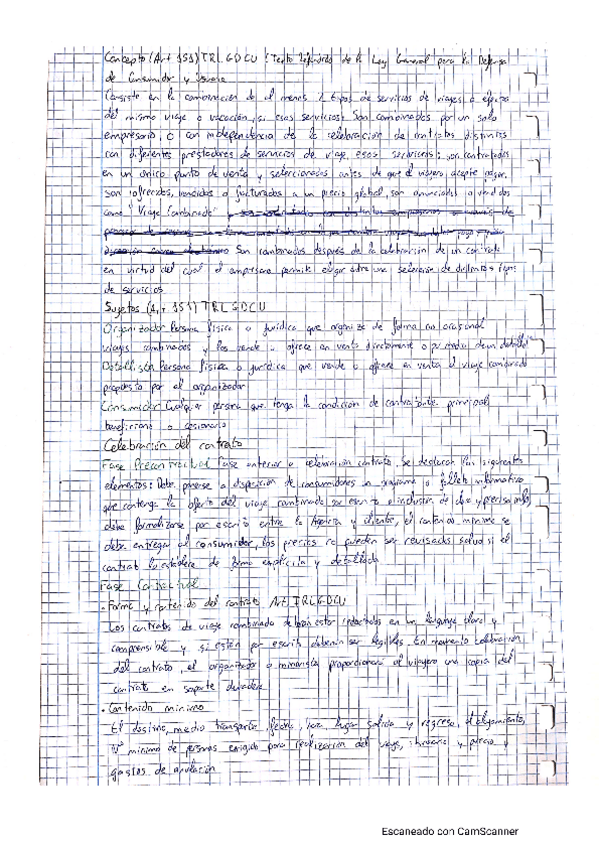 Concepto (Art 151) TRLGDCU (Texto Refundido de la Ley General para la Defensa
de Consumidor y Usuario
Consiste en la combinación de al menos 2 tipos de servicios de viajes a efectos
del mismo viaje o vacación, si esos servicios: Son combinados por un solo
empresario, o con independencia de la celebración de contratos distintos
con diferentes prestadores de servicios de viaje, esos servicios: son contratados
en un único punto de venta y seleccionados antes de que el viajero acepte pagar,
son ofrecidos, vendidos o facturados a un precio global, son anunciados o vendidos
como "Viaje Combinado"
Son combinados después de la celebración de un contrato
en virtud del cual el empresario permite elegir entre una selección de distintos tipos
de servicios
Sujetos (Art 151) TRLGDCU
Organizador Persona física o jurídica que organiza de forma no ocasional
viajes combinados y los vende u ofrece en venta directamente o por medio de un detallista
Detallista Persona física o jurídica que vende o ofrece en venta el viaje combinado
propuesto por el organizador
Consumidor Cualquier persona que tenga la condición de contratante principal
beneficiario o cesionario
Celebración del contrato
Fase Precontractual Fase anterior a celebración contrato. Se declaran los siguientes
elementos: Debe ponerse a disposición de consumidores un programa o folleto informativo
que contenga la oferta del viaje combinado por escrito e inclusión de clara y precisa info,
debe formalizarse por escrito entre la Agencia y cliente, el contenido mínimo se
debe entregar al consumidor, los precios no pueden ser revisados salvo si el
contrato lo establece de forma explícita y detallada
Fase Contractual
• Forma y contenido del contrato Art TRLGDCU
Los contratos de viaje combinado deberán estar redactados en un lenguaje claro y
comprensible y si están por escrito deberán ser legibles. En momento celebración
del contrato, el organizador o minorista proporcionará al viajero una copia del
contrato en soporte duradero
• Contenido mínimo
El destino, medio transporte, fecha, hora lugar salida y regreso, el alojamiento,
Nº mínimo de personas exigido para realización del viaje, itinerario y precio y
gastos de anulación
Escaneado con CamScanner